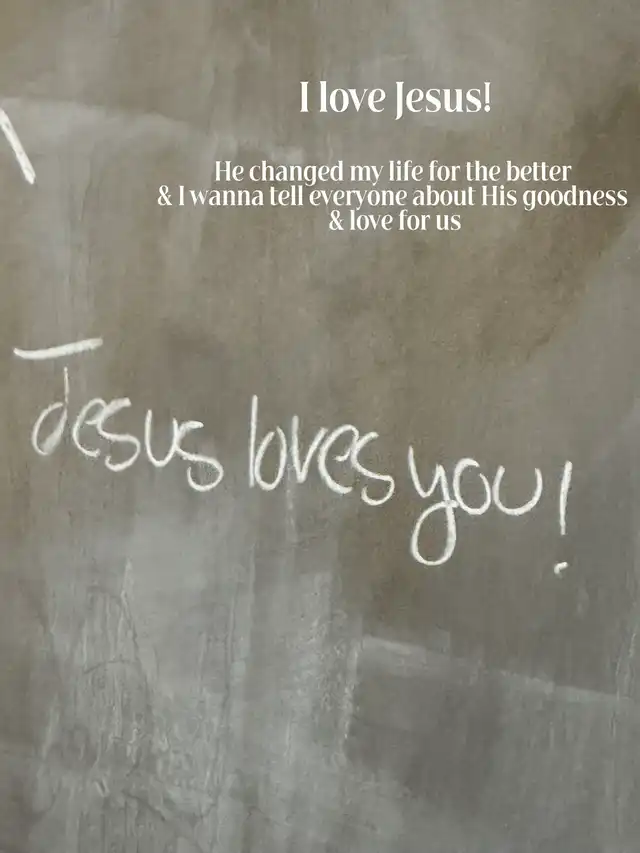 I love Jesus!
He changed my life for the better
& I wanna tell everyone about His goodness
& love for us
Jesus loves you!